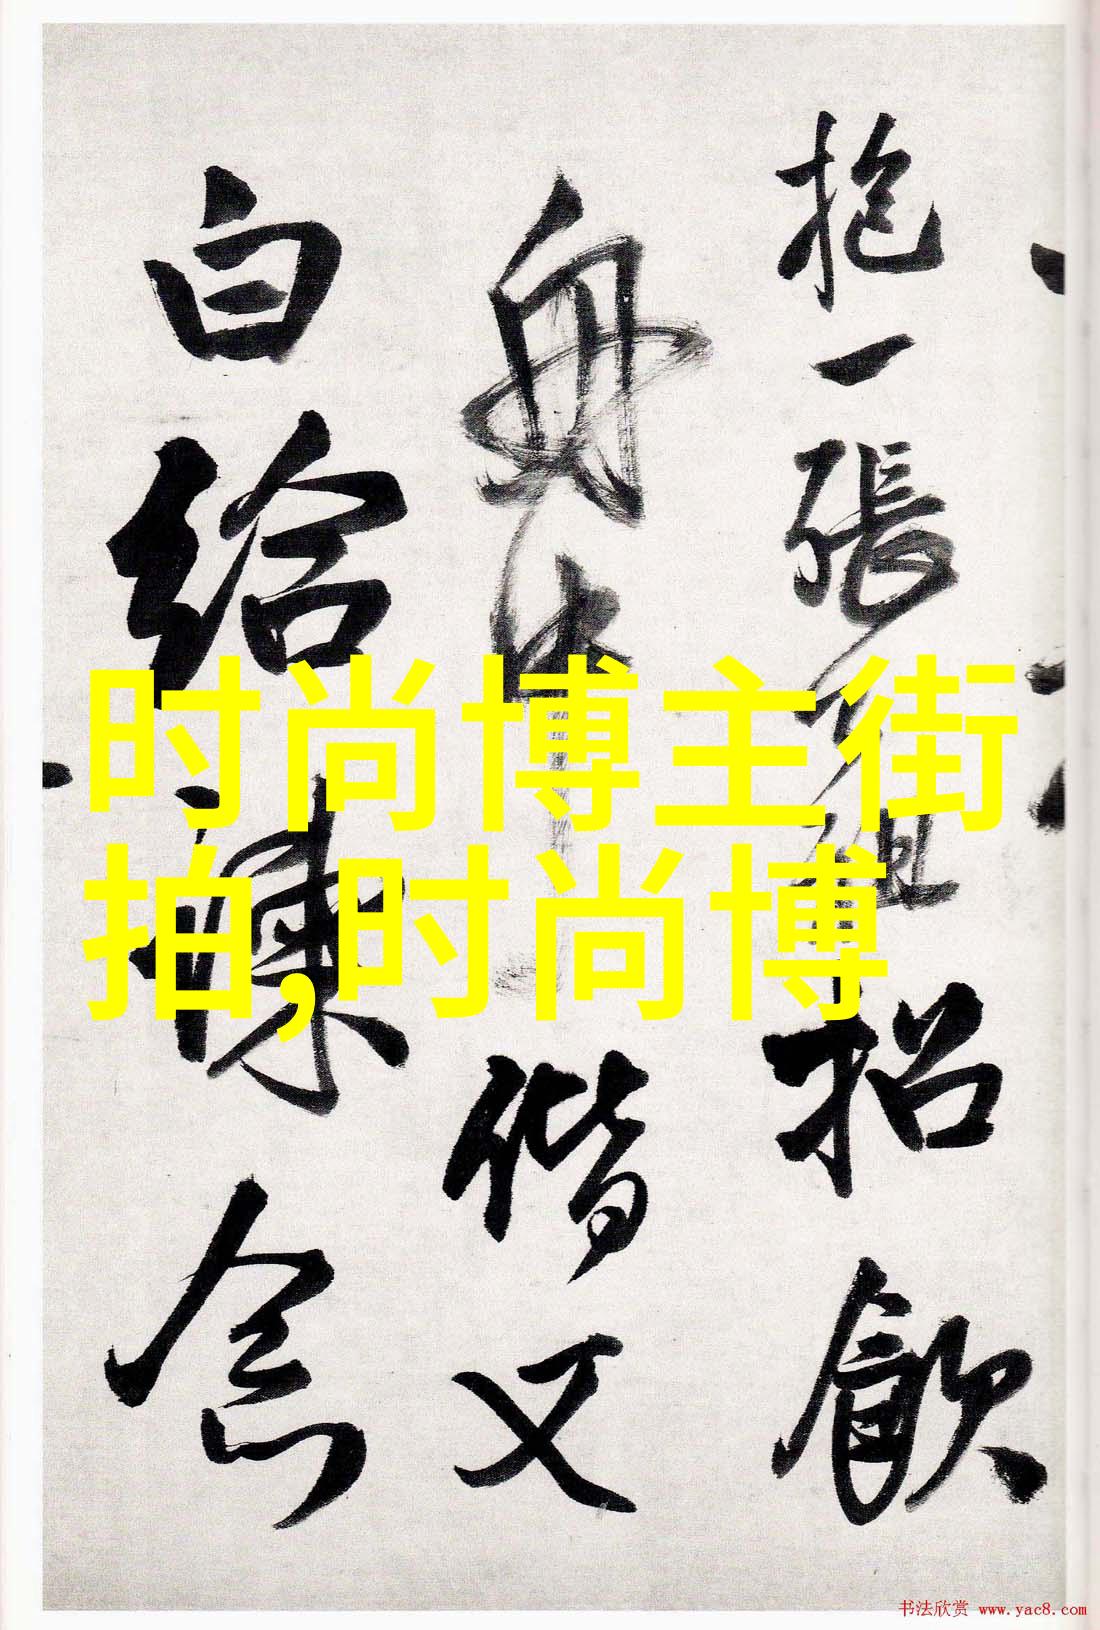 抱一張
招飲
舟中
偕又
白給諫
念
时尚博主街
拍,时尚博
书法欣赏 www.yac8.com